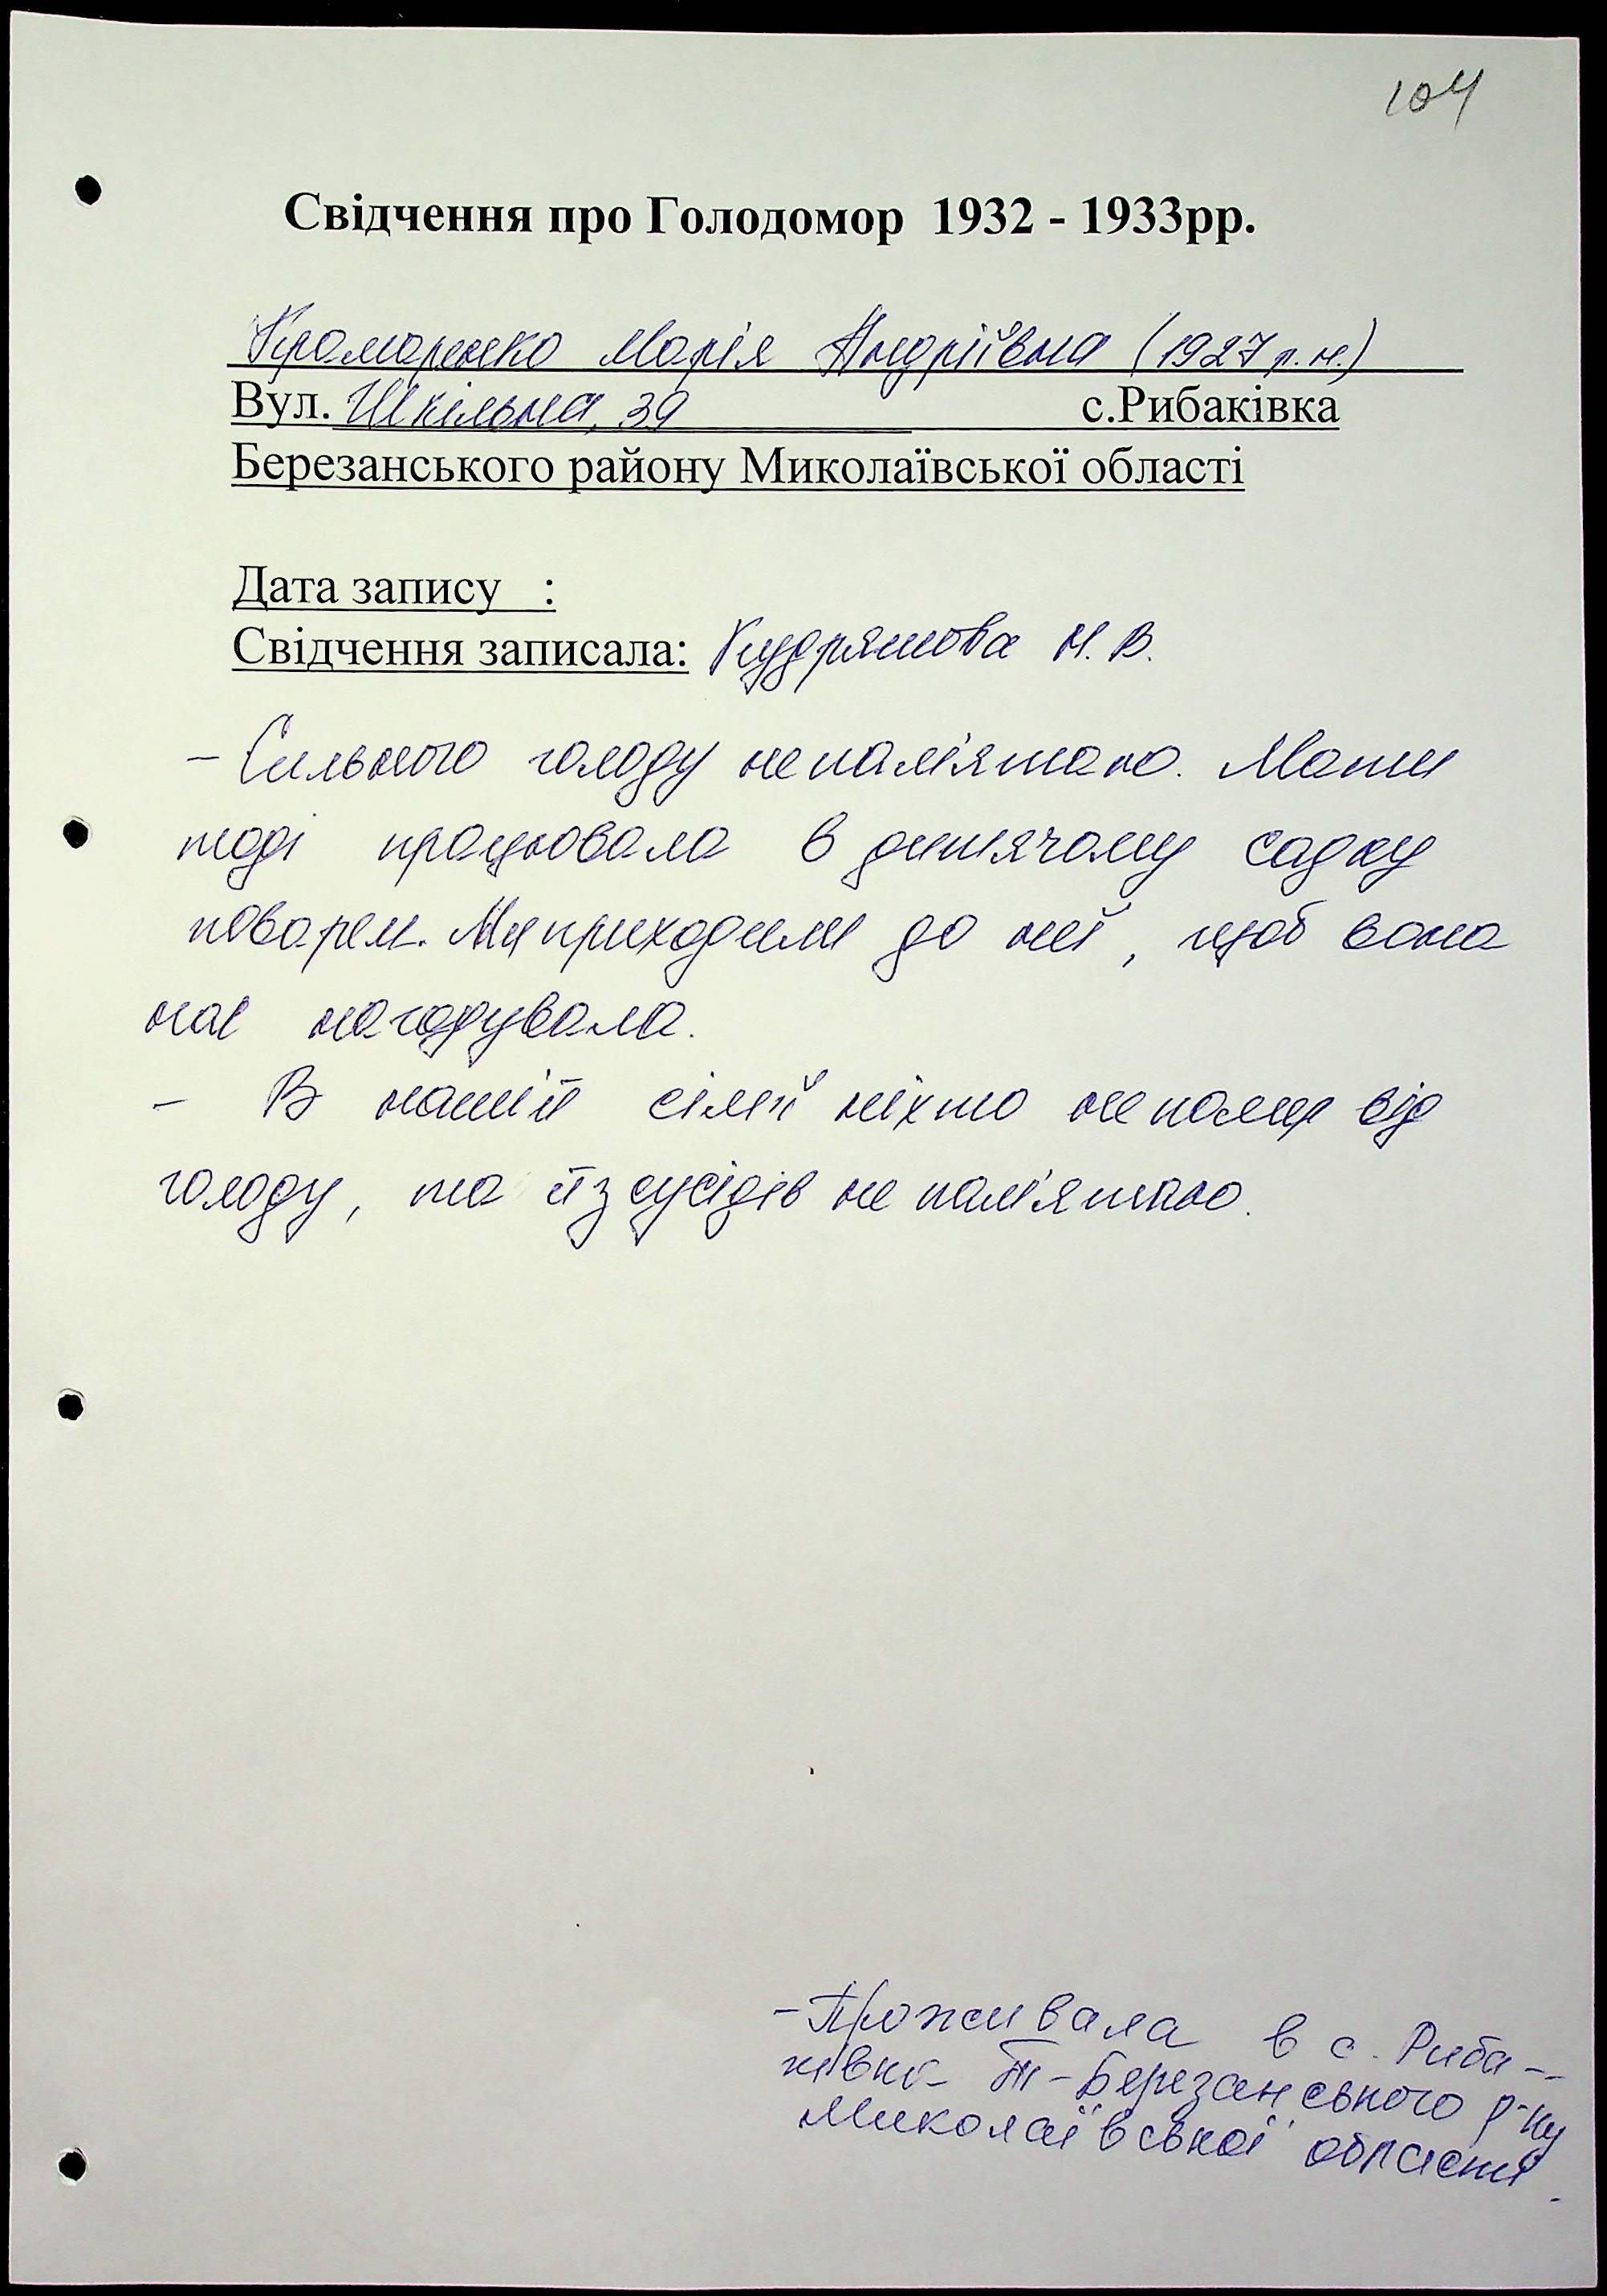 104
Свідчення про Голодомор 1932 - 1933рр.
Крамаренко Марія Андріївна (1927 р.н.)
Вул. Шкільна, 39 с.Рибаківка
Березанського району Миколаївської області
Дата запису :
Свідчення записала: Кудряшова Н. В.
- Сильного голоду не пам'ятаю. Мати
тоді працювала в дитячому садку
поваром. Ми приходили до неї, щоб вона
нас нагодувала.
- В нашій сім'ї ніхто не помер від
голоду, та й з сусідів не пам'ятаю.
- Проживала в с. Риба-
ківка Березанського р-ну
Миколаївської області.